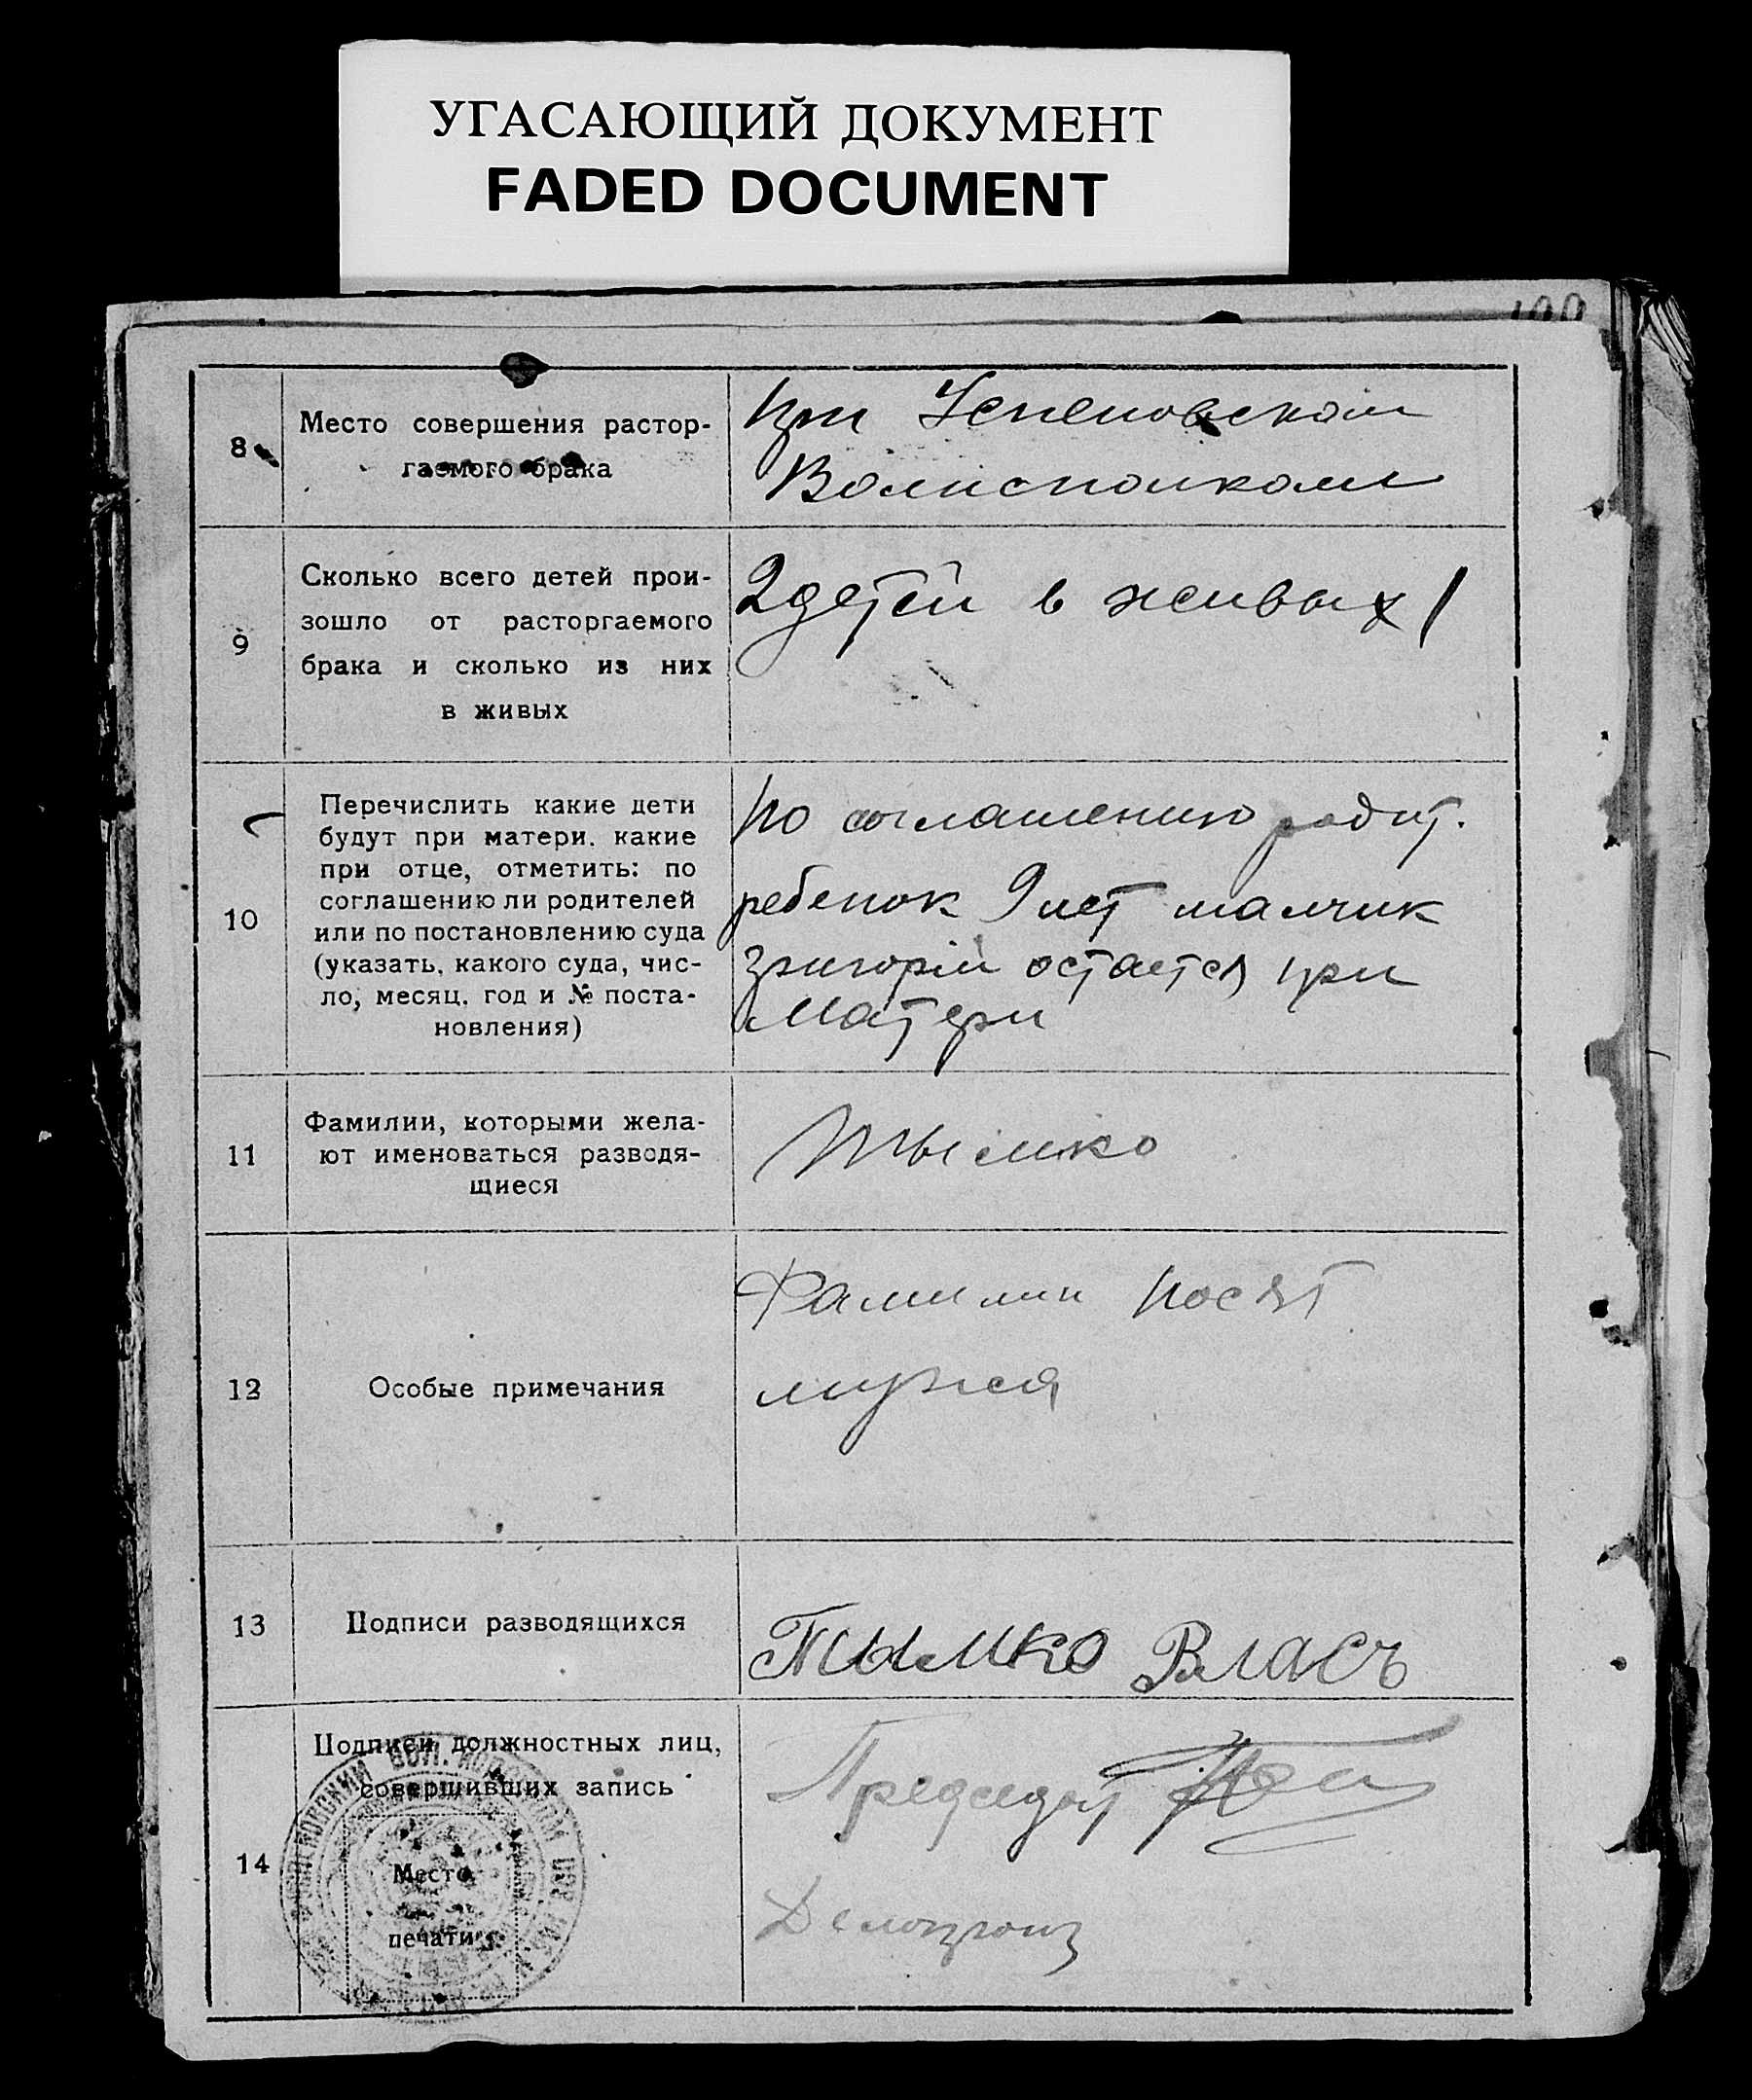 УГАСАЮЩИЙ ДОКУМЕНТ
FADED DOCUMENT
8
Место совершения растор-
гаемого брака
при Успеновском
Волисполкоме
9
Сколько всего детей прои-
зошло от расторгаемого
брака и сколько из них
в живых
2 детей в живых 1
10
Перечислить какие дети
будут при матери, какие
при отце, отметить: по
соглашению ли родителей
или по постановлению суда
(указать, какого суда, чис-
ло, месяц, год и № поста-
новления)
по соглашению родит.
ребенок 9 лет малчик
григорій остается при
матери
11
Фамилии, которыми жела-
ют именоваться разводя-
щиеся
Тымко
12
Особые примечания
Фамилии носят
мужа
13
Подписи разводящихся
Тымко Власъ
14
Подписи должностных лиц,
совершивших запись
Место
печати
Председат
Делопроиз